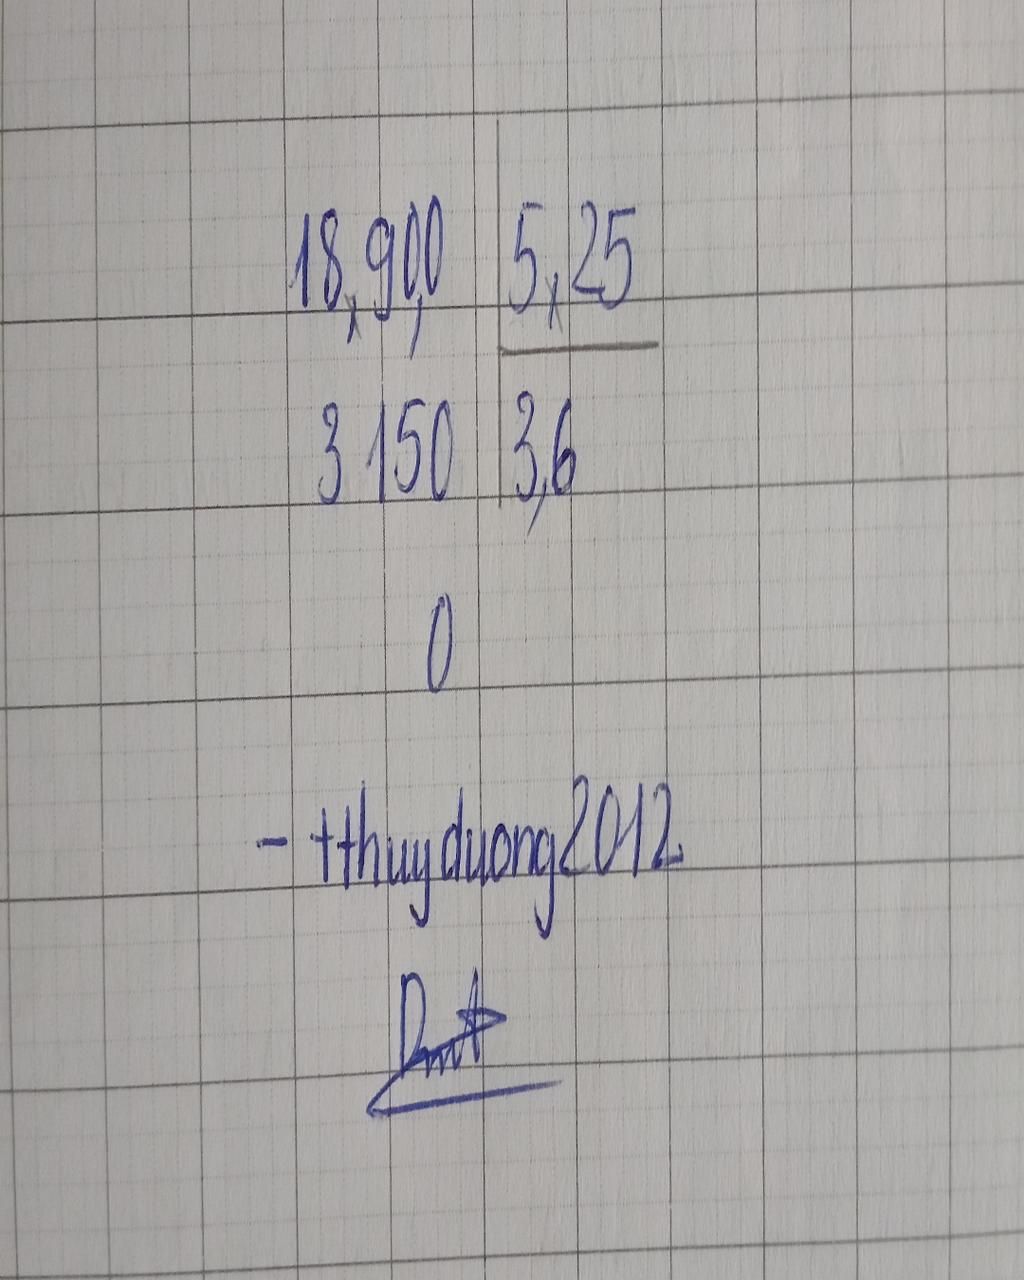 18,90,0 5,25
3 150 3,6
0
- tthuyduong2012